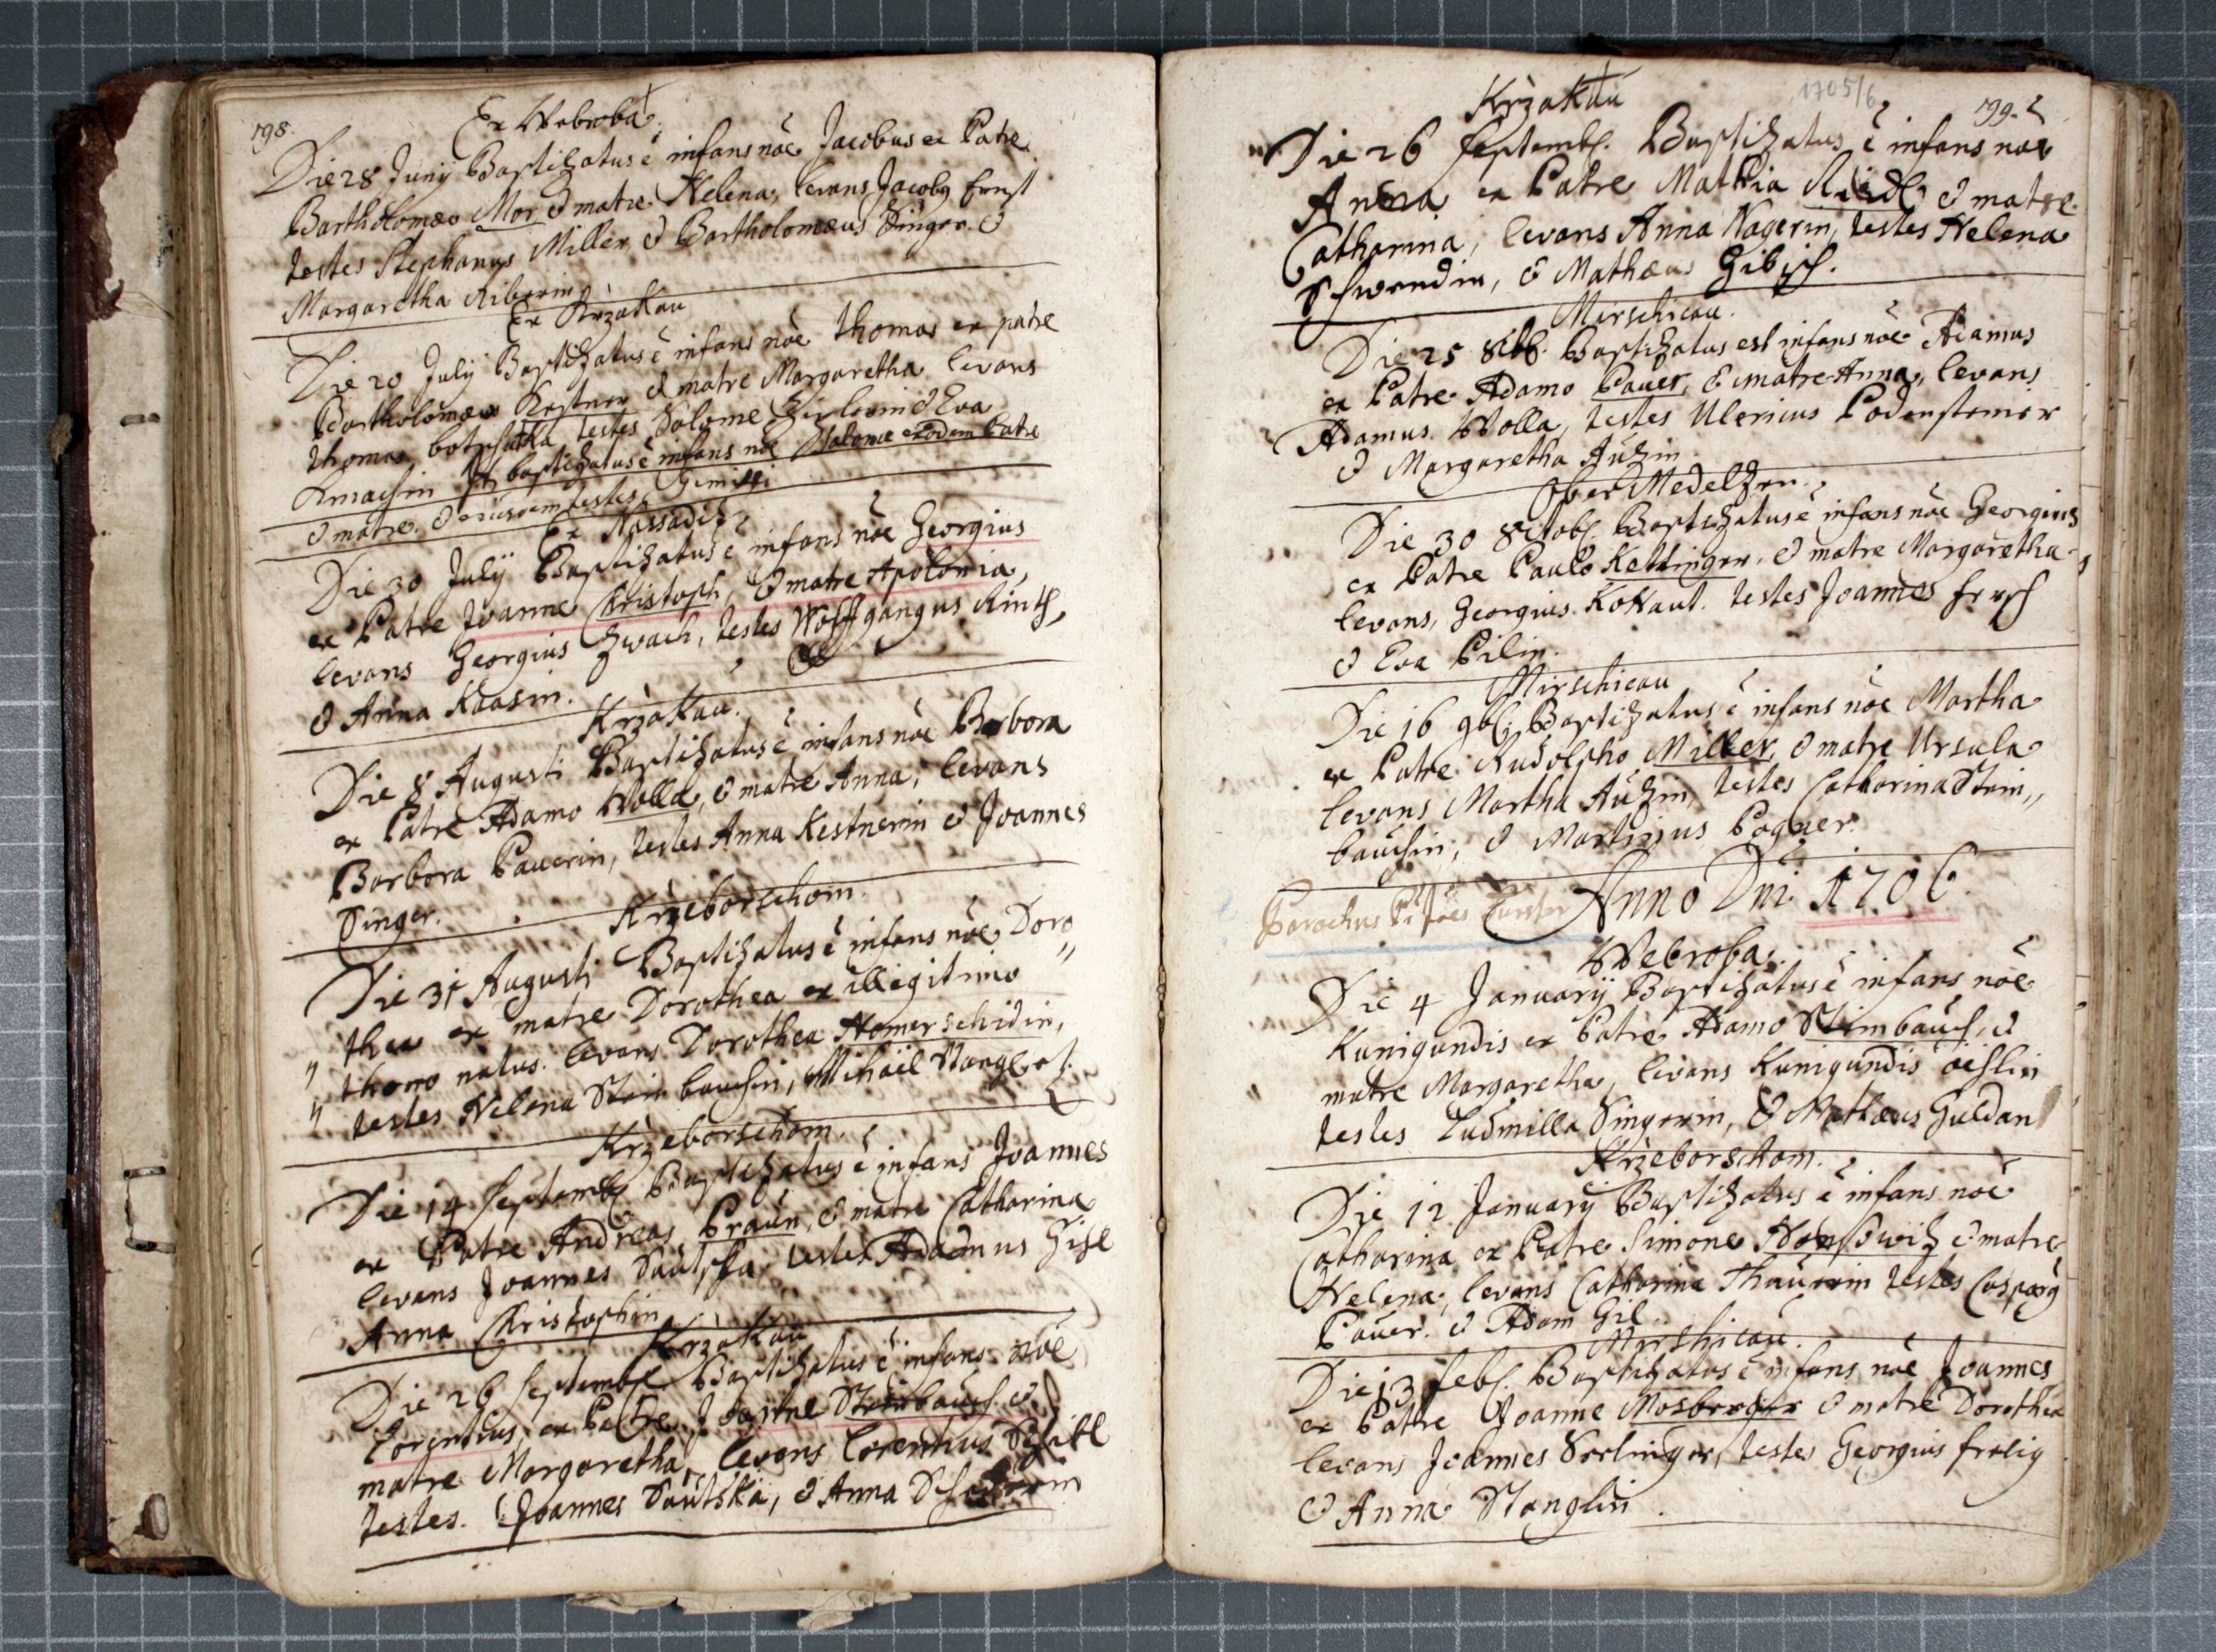 198.
Ex Webroba
Die 28 Junij Baptizatus ē infans nõe Jacobus ex Patre
Bartholomæo Mor et matre Helena, levans Jacobg Ernst
testes Stephanus Miller et Bartholomæus Singer et
Margaretha Riberin
Ex Krzakau
Die 20 Julij Baptizatus ē infans nõe Thomas ex patre
Bartholomæo Kestner et matre Margaretha levans
Thomas testes Salome et Eva
baptizatus ē infans nõe Salome ex eodem Patre
et matre et eiusdem testes Gemilli
Ex Nassaditz
Die 30 Julij Baptizatus ē infans nõe Georgius
ex Patre Joanne Christoph, et matre Apolonia,
levans Georgius Zwach, testes Wolffgangus
et Anna Kaasin.
Krzakau.
Die 8 Augusti Baptizatus ē infans nõe Barbora
ex Patre Adamo Wolla, et matre Anna, levans
Barbora Pauerin, testes Anna Kestnerin et Joannes
Singer.
Krzeborschom.
Die 31 Augusti Baptizatus ē infans nõe Doro
" thea ex matre Dorothea ex illegitimo "
" thoro natus. levans Dorothea Homerschidin,
" testes Helena Steinbauchin, Mihäel
Krzeborschom.
Die 14 Septemb Baptizatus ē infans Joannes
ex Patre Andreas Praun, et matre Catharina
levans Joannes Sautska, testes Adamus Gisl
Anna Christophin
Krzakau
Die 26 Septemb Baptizatus ē infans nõe
Lorentius, ex Patre Joanne Steinbauch et
matre Margaretha, levans Lorentius
testes. Joannes Sautska, et Anna
1705/6
199.
Krzakau
Die 26 Septemb. Baptizatus ē infans nõe
Anna ex Patre Mathia Riedl et matre
Catharina, levans Anna Nagerin, testes Helena
Schwendin, et Mathæus Gibisch.
Mirschicau.
Die 25 8bb. Baptizatus est infans nõe Adamus
ex Patre Adamo Pauer, et matre Anna, levans
Adamus Wolla, testes Ulericus Podensteiner
et Margaretha Autzin
Ober Medeltzen.
Die 30 8ctob Baptizatus ē infans nõe Georgius
ex Patre Paulo Kettinger, et matre Margaretha
levans, Georgius Kohaut. testes Joannes
et Eva Pilin.
Mirschicau
Die 16 9b. Baptizatus ē infans nõe Martha
ex Patre Rudolpho Miller, et matre Ursula
levans Martha Autzin, testes Catharina Stein,,
bauchin, et Martinus Pogner.
Parochus Anno Dni 1706.
Webroba.
Die 4 Januarij Baptizatus ē infans nõe
Kunigundis ex Patre Adamo Steinbauch, et
matre Margaretha, levans Kunigundis
testes Ludmilla Singerin, et Mathæus Guldan
Krzeborschom.
Die 12 Januarij Baptizatus ē infans nõe
Catharina ex Patre Simone et matre
Helena, levans Catharina testes Casparg
Pauer. et Adam Gil
Mirshicau.
Die 13 feb. Baptizatus ē infans nõe Joannes
ex Patre Joanne Mosberger et matre Dorothea
levans Joannes Serlinger, testes Georgius frelig
et Anna Stanglin.